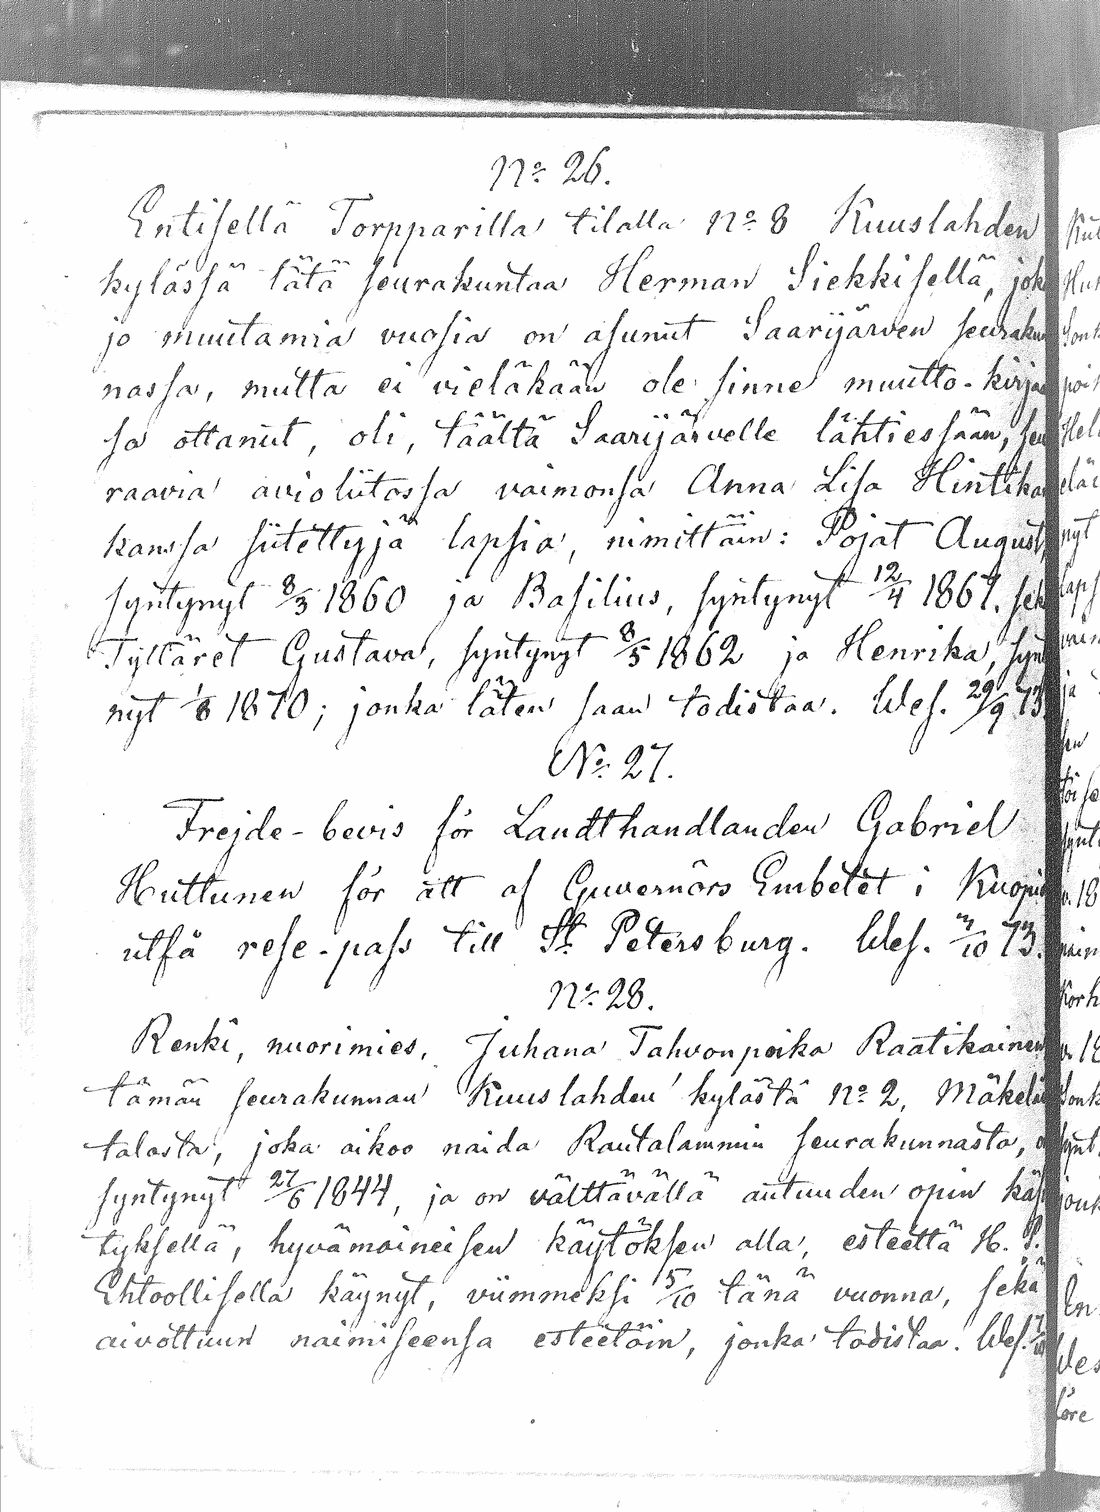 No 26.
Entisellä Torpparilla tilalla No 8 Kuuslahden
kylässä tätä seurakuntaa Herman Siekkisellä, jok
jo muutamia vuosia on asunut Saarijärven seuraku
nassa, mutta ei vieläkään ole sinne muutto-kirjaa
sa ottanut, oli, täältä Saarijärvelle lähtiessään, seu
raavia avioliitossa vaimonsa Anna Lisa Hintika
kanssa siitettyjä lapsia, nimittäin: Pojat August,
syntynyt 8/3 1860 ja Basilius, syntynyt 12/4 1867. sek
Tyttäret Gustava, syntynyt 8/5 1862 ja Henrika, syn
nyt 1/8 1870; jonka täten saan todistaa. Wes. 29/9 73.
No 27.
Frejde-bevis för Landthandlanden Gabriel
Huttunen för att af Guvernörs Embetet i Kuopio
utfå rese-pass till St. Petersburg. Wes. 3/10 73.
No 28.
Renki, nuorimies, Juhana Tahvonpoika Raatikainen
tämän seurakunnan Kuuslahden kylästä No 2, Mäkelä
talosta, joka aikoo naida Rautalammin seurakunnasta, o
syntynyt 27/6 1844, ja on välttävällä autuuden opin käs
tyksellä, hyvämaineisen käytöksen alla, esteettä H. S.
Ehtoollisella käynyt, viimmeksi 5/10 tänä vuonna, sekä
aivottuun naimiseensa esteetöin, jonka todistaa. Wes. 7/10